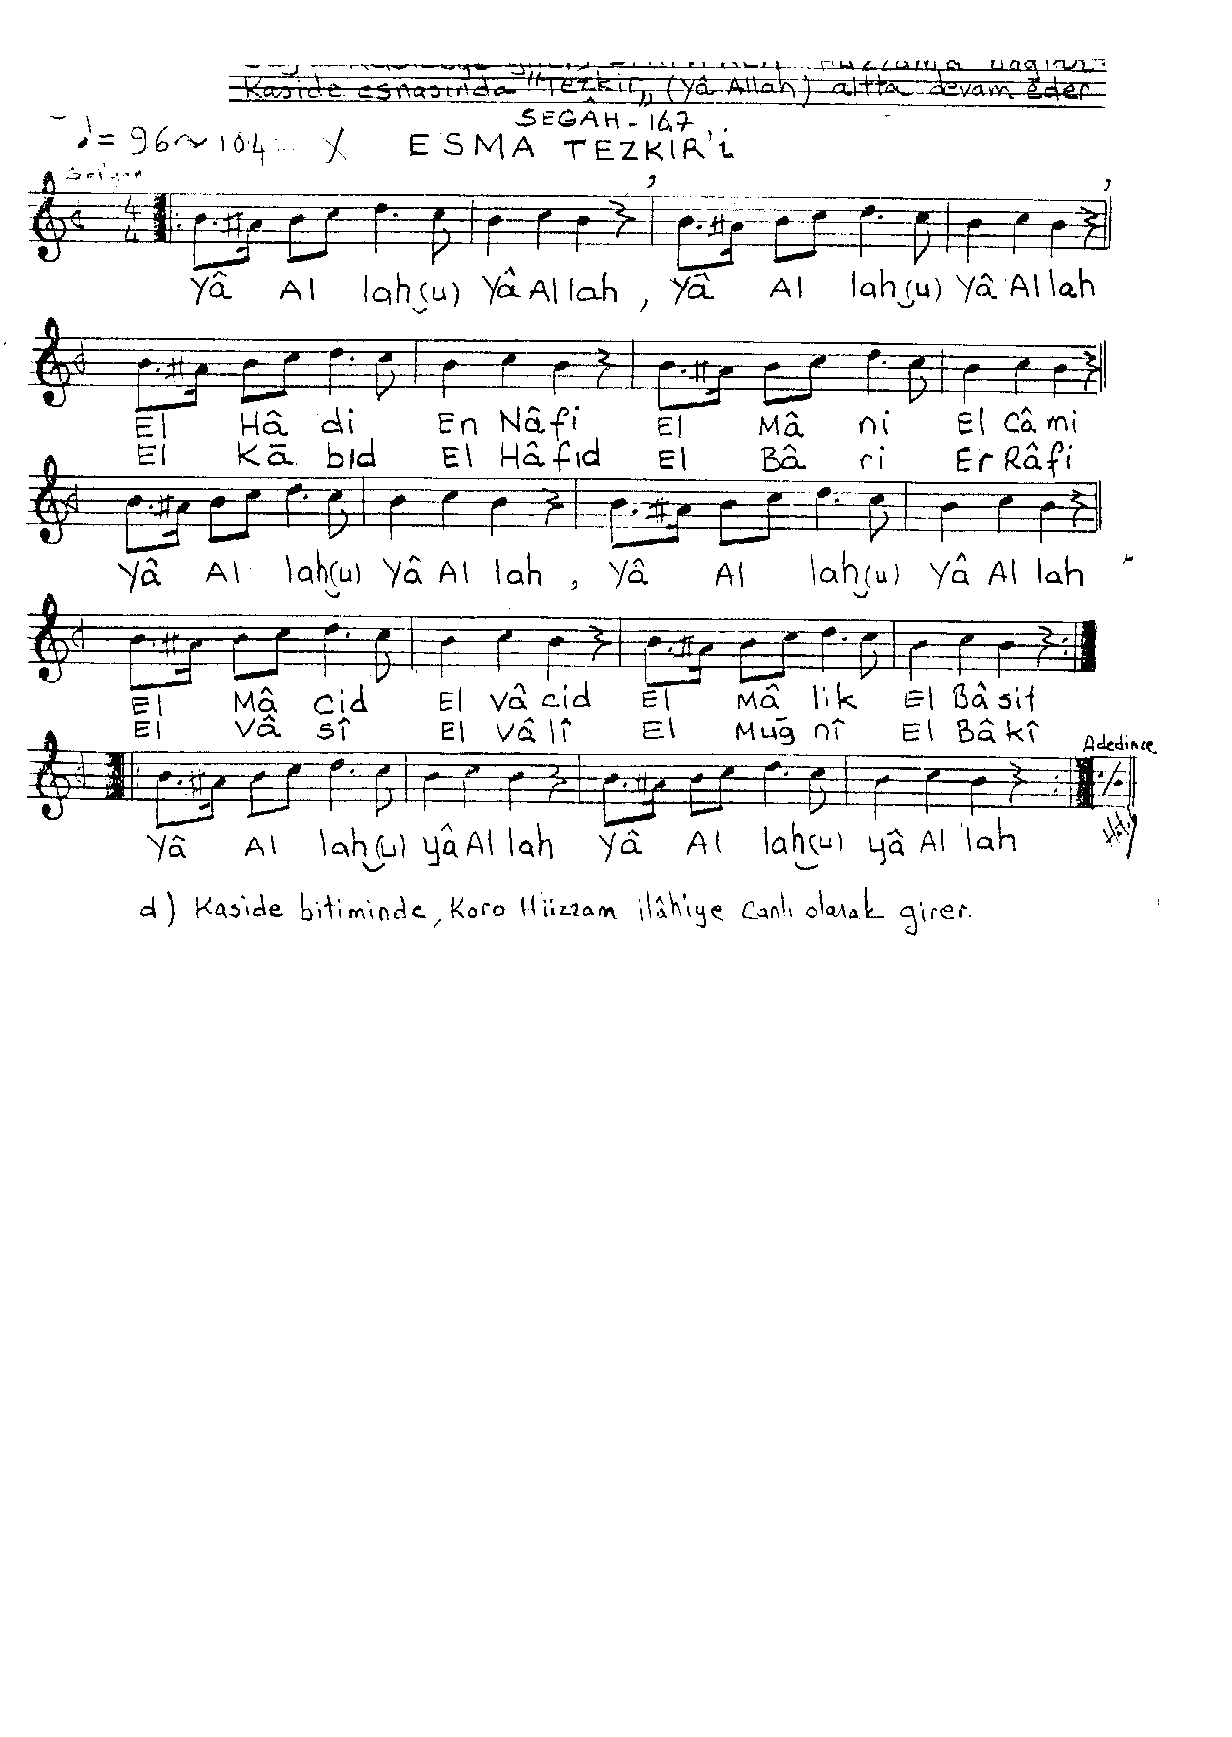 Kaside esnasında "Tezkir„ (Yâ Allah) altta devam eder
SEGÂH - 167
♩= 96~104 X ESMA TEZKIR'i
4/4
Yâ Al lah(u) Yâ Al lah , Yâ Al lah(u) Yâ Al lah
El Hâ di En Nâ fi El Mâ ni El Câ mi
El Kā bıd El Hâ fıd El Bâ ri Er Râ fi
Yâ Al lah(u) Yâ Al lah , Yâ Al lah(u) Yâ Al lah
El Mâ cid El vâ cid El Mâ lik El Bâ sit
El Vâ sî El Vâ lî El Muğ nî El Bâ kî
Adedince
Yâ Al lah(u) yâ Al lah Yâ Al lah(u) yâ Al lah
d) Kaside bitiminde, Koro Hüzzam ilâhiye Canlı olarak girer.